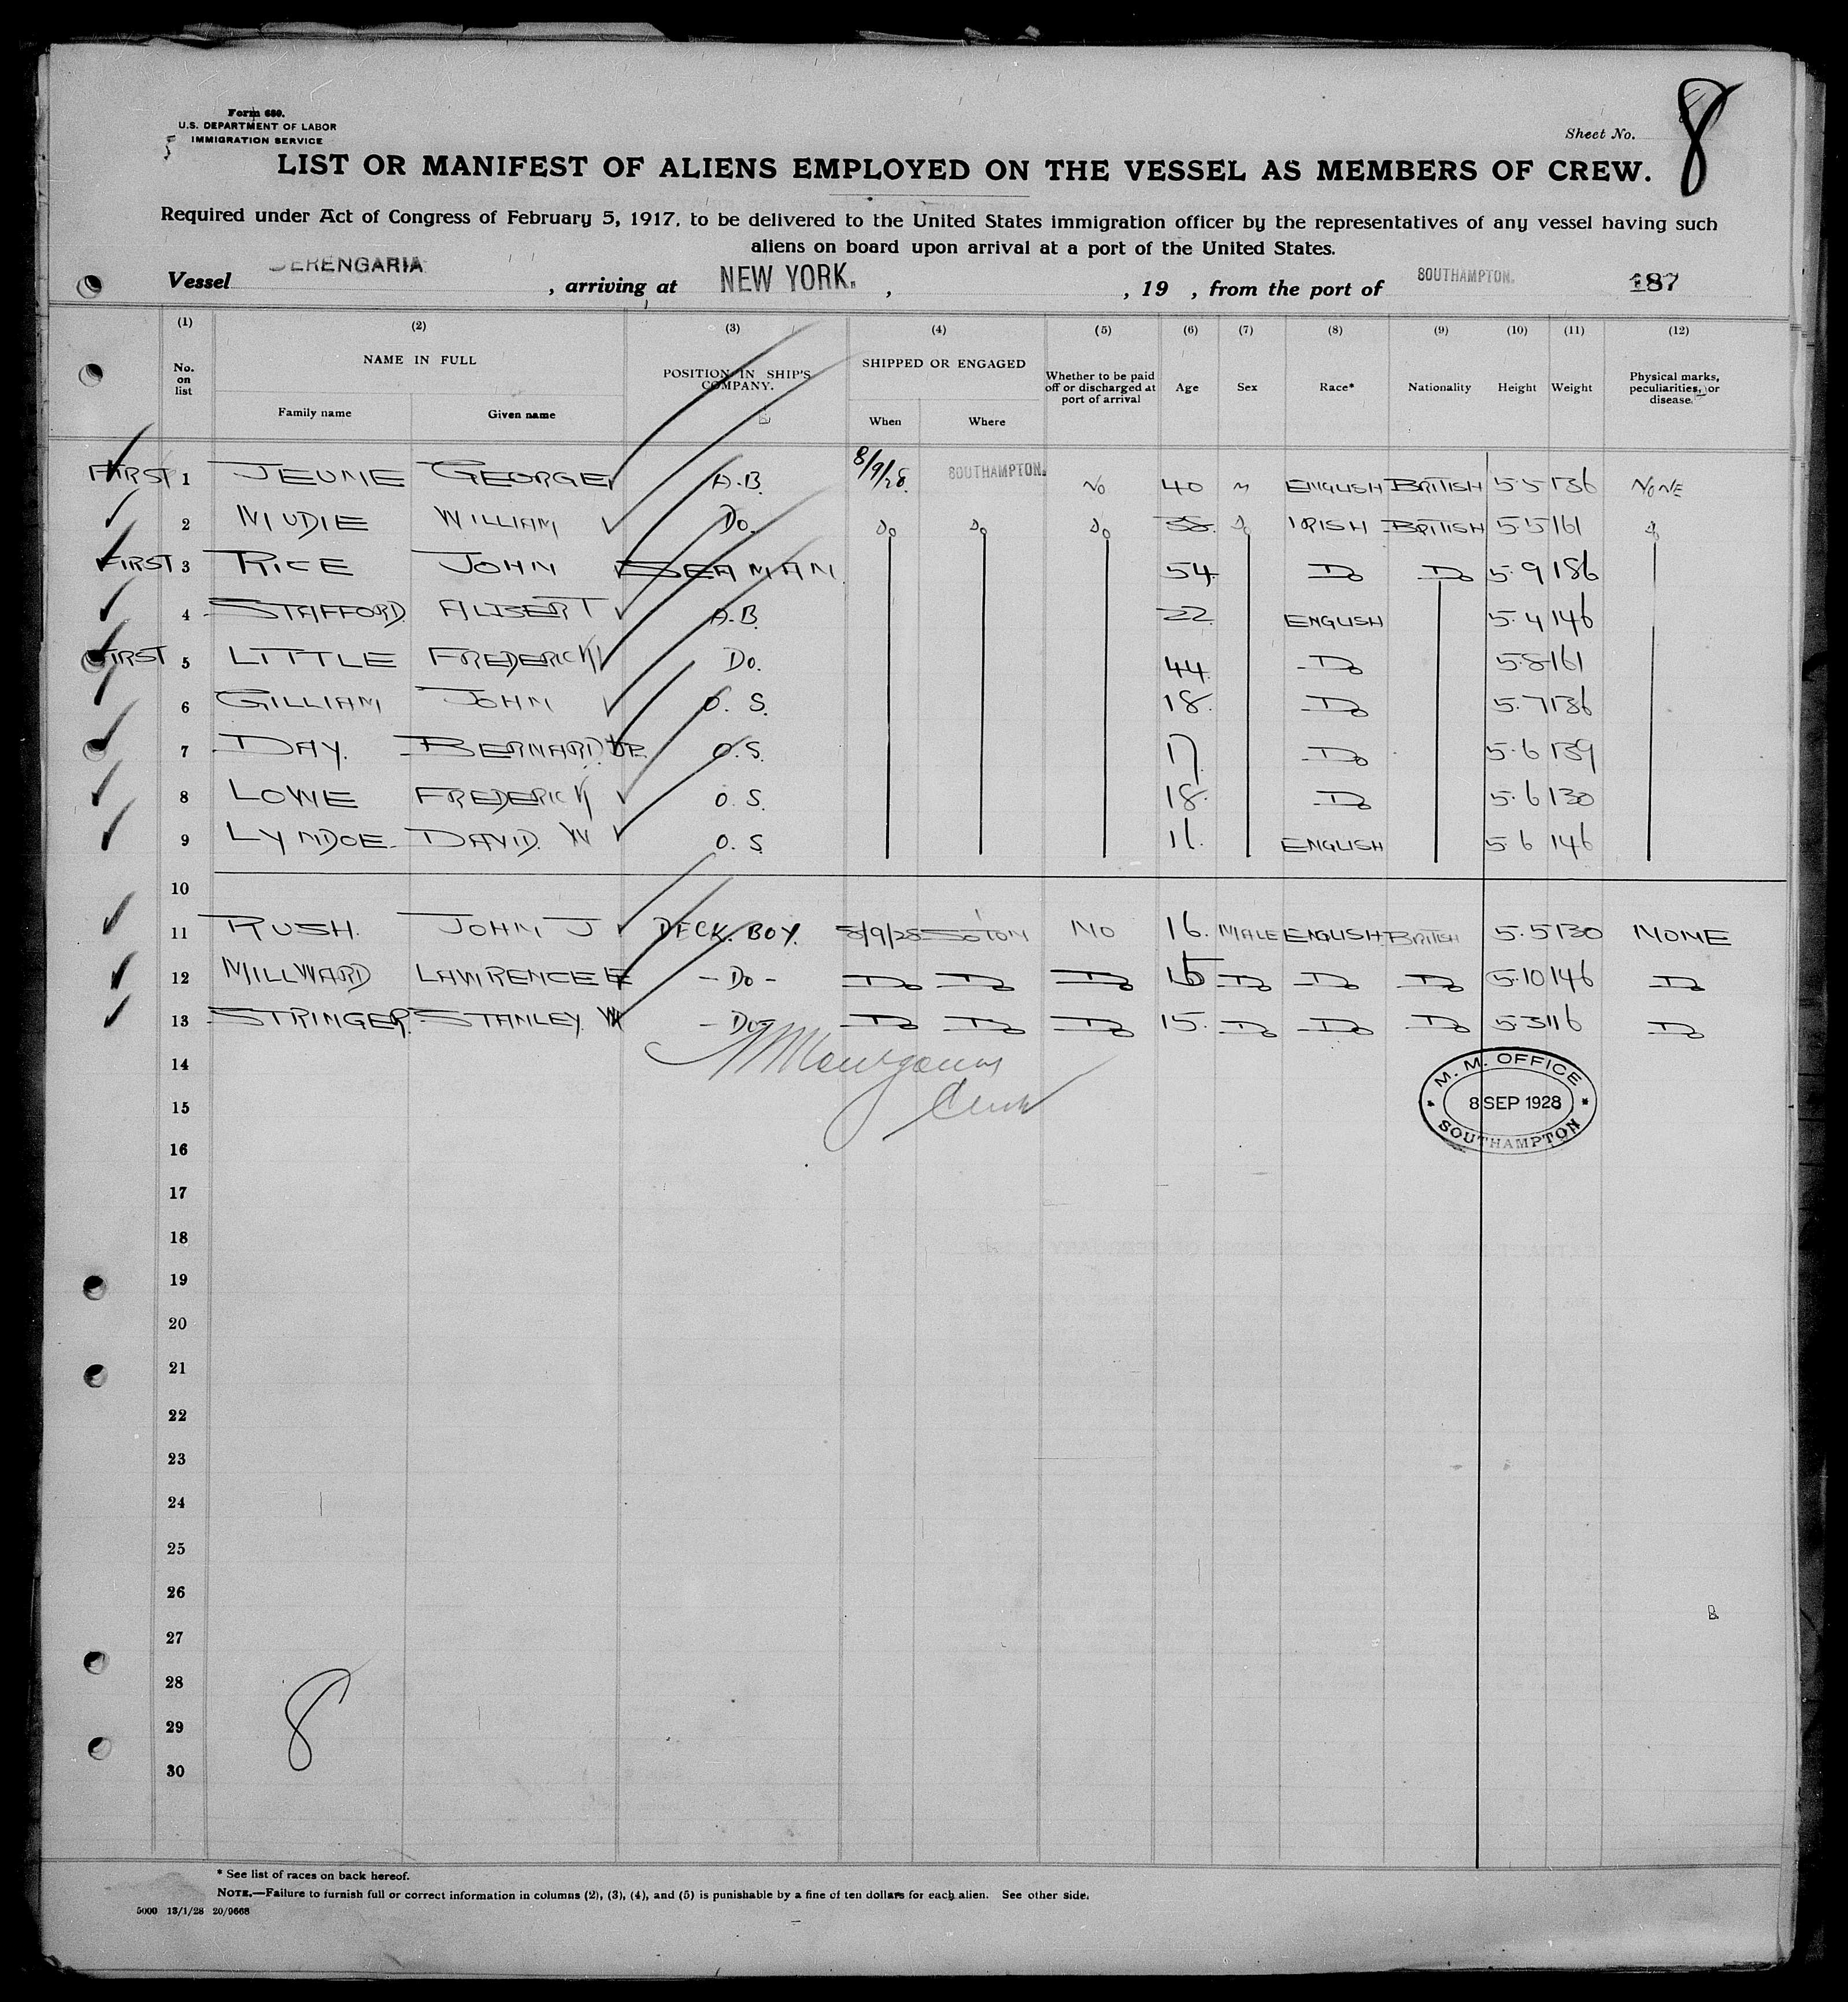 Form 680.
U.S. DEPARTMENT OF LABOR
IMMIGRATION SERVICE
Sheet No. 8
LIST OR MANIFEST OF ALIENS EMPLOYED ON THE VESSEL AS MEMBERS OF CREW.
Required under Act of Congress of February 5, 1917, to be delivered to the United States immigration officer by the representatives of any vessel having such
aliens on board upon arrival at a port of the United States.
Vessel BERENGARIA , arriving at NEW YORK. , , 19 , from the port of SOUTHAMPTON. 187
(1) (2) (3) (4) (5) (6) (7) (8) (9) (10) (11) (12)
No. on list NAME IN FULL Family name Given name POSITION IN SHIP'S COMPANY. SHIPPED OR ENGAGED When Where Whether to be paid off or discharged at port of arrival Age Sex Race* Nationality Height Weight Physical marks, peculiarities, or disease.
FIRST 1 JEUNE GEORGE A.B. 8/9/28. SOUTHAMPTON. NO 40 M ENGLISH BRITISH 5.5 136 NONE
2 MUDIE WILLIAM Do. Do Do Do 38. Do IRISH BRITISH 5.5 161 Do
FIRST 3 RICE JOHN SEAMAN 54 Do Do 5.9 186
4 STAFFORD ALBERT A.B. 22 ENGLISH 5.4 146
FIRST 5 LITTLE FREDERICK Do. 44 Do 5.8 161
6 GILLIAM JOHN O. S. 18. Do 5.7 136
7 DAY. BERNARD. O. S. 17 Do 5.6 139
8 LOWE FREDERICK O. S. 18. Do 5.6 130
9 LYNDOE DAVID. W O. S. ENGLISH 5 6 146
10
11 RUSH. JOHN J DECK. BOY. 8/9/28 SOTON NO 16. MALE ENGLISH BRITISH 5.5 130 NONE
12 MILLWARD LAWRENCE E - Do - Do Do Do Do Do Do 5.10 146 Do
13 STRINGER. STANLEY W - Do - Do Do Do 15. Do Do Do 5.3 116 Do
14
15
16
M. M. OFFICE
8 SEP 1928
SOUTHAMPTON
17
18
19
20
21
22
23
24
25
26
27
28
29
30
8
* See list of races on back hereof.
NOTE.—Failure to furnish full or correct information in columns (2), (3), (4), and (5) is punishable by a fine of ten dollars for each alien. See other side.
5000 13/1/28 20/9668